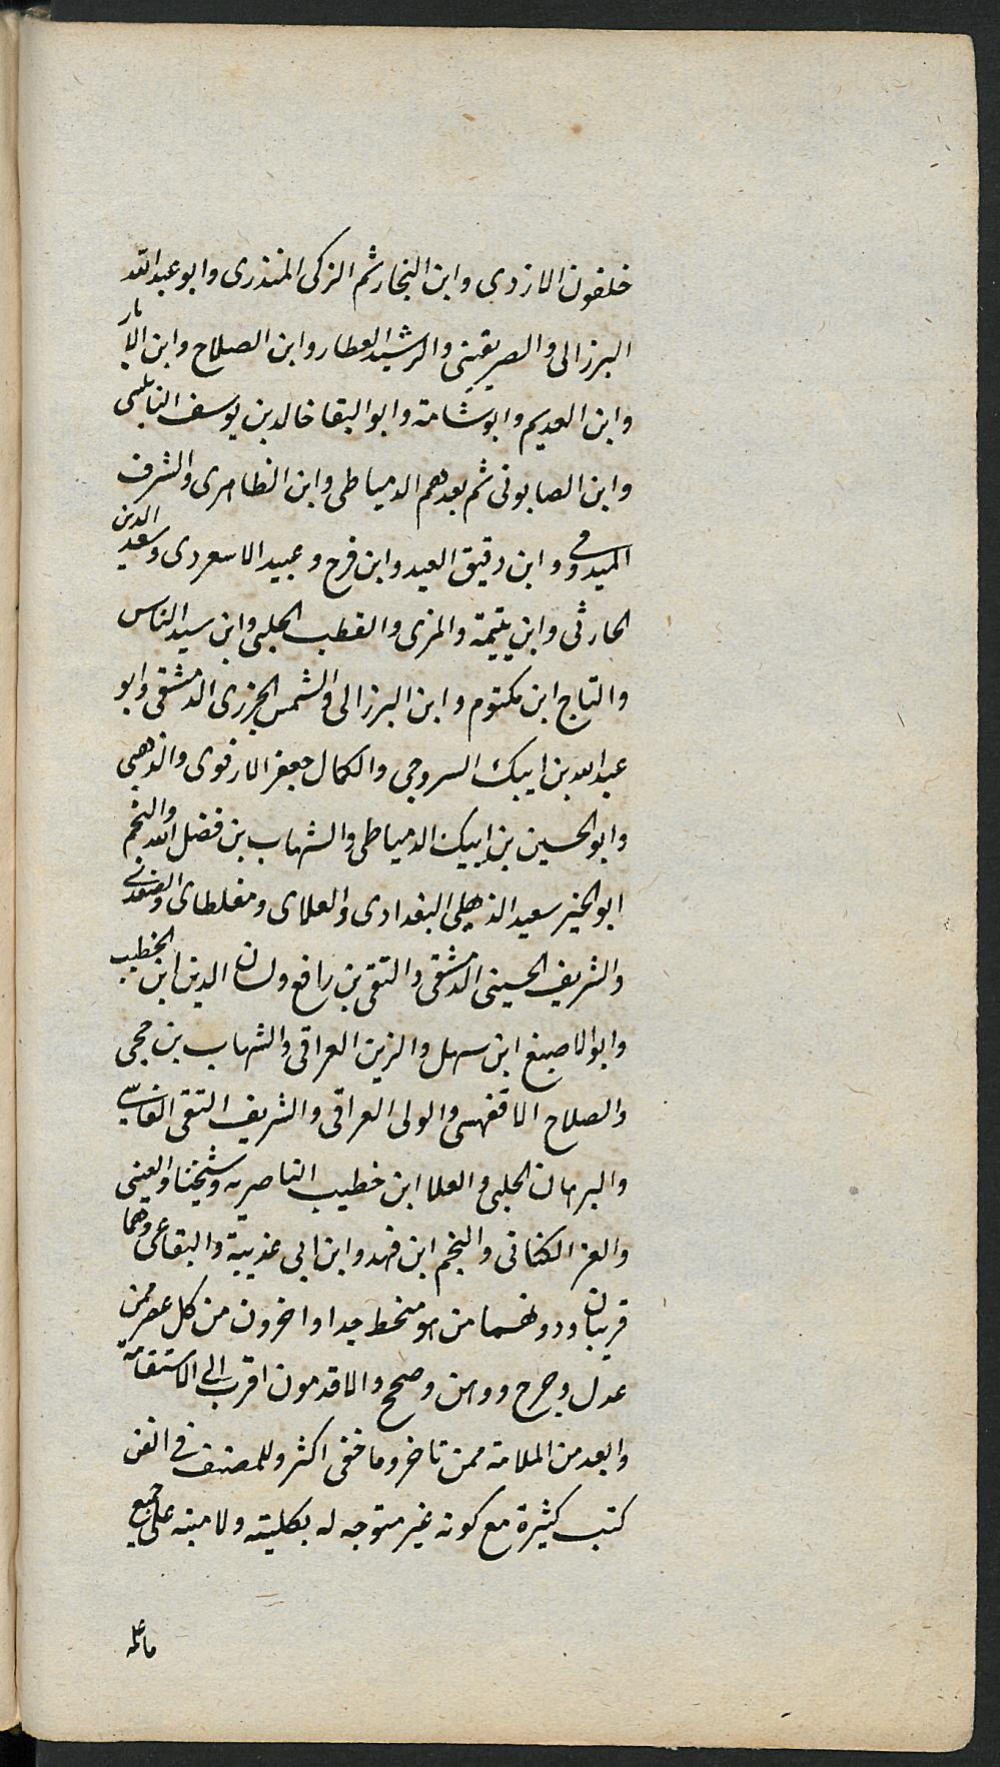 خلفون الازدى وابن النجار ثم الزكى المنذرى وابو عبد الله
البرزالى والصريفينى والرشيد العطار وابن الصلاح وابن الابار
وابن العديم وابو شامة وابو البقا خالد بن يوسف النابلسى
وابن الصابونى ثم بعدهم الدمياطى وابن الظاهرى والشرف
الميدومى وابن دقيق العيد وابن فرح وعبيد الاسعردى وسعد الدين
الحارثى وابن تيمية والمزى والقطب الحلبى وابن سيد الناس
والتاج ابن مكتوم وابن البرزالى والشمس الجزرى الدمشقى وابو
عبد الله بن ايبك السروجى والكمال جعفر الادفوى والذهبى
وابو الحسين بن ايبك الدمياطى والشهاب بن فضل الله والنجم
ابو الخير سعيد الذهلى البغدادى والعلاى ومغلطاى والصفدى
والشريف الحسينى الدمشقى والتقى بن رافع ولسان الدين ابن الخطيب
وابو الاصبغ ابن سهل والزين العراقى والشهاب بن حجى
والصلاح الاقفهسى والولى العراقى والشريف التقى الفاسى
والبرهان الحلبى والعلا ابن خطيب الناصرية وشيخنا والعينى
والعز الكنانى والنجم ابن فهد وابن ابى عذيبة والبقاعى وهما
قريبان ودونهما من هو منحط جدا واخرون من كل عصر ممن
عدل وجرح ووهن وصحح والاقدمون اقرب الى الاستقامة
وابعد من الملامة ممن تاخر وما خفى اكثر وللمصنف فى الفن
كتب كثيرة مع كونه غير متوجه له بكليته ولا منبه على جميع
ما علمه